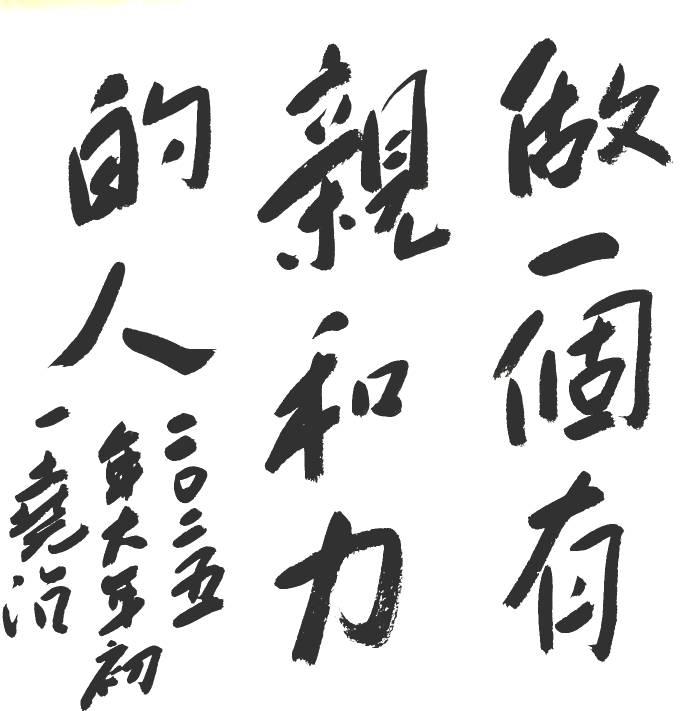 做一個有
親和力
的人
二〇二五
年大年初
一堯治